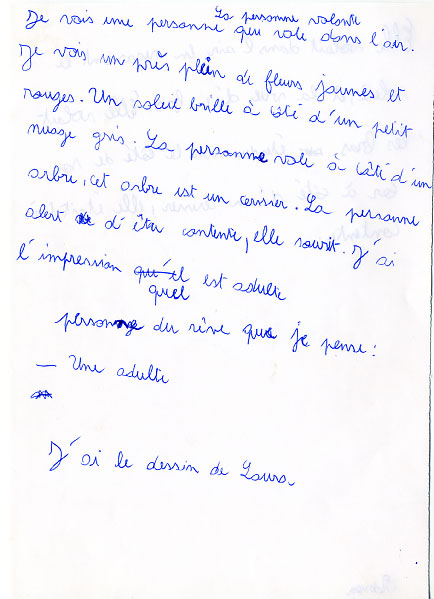 La personne volante
Je vois une personne qui vole dans l'air.
Je vois un près plein de fleurs jaunes et
rouges. Un soleil brille à côté d'un petit
nuage gris. La personne vole à côté d'un
arbre, cet arbre est un cerisier. La personne
alert d'être contente, elle sourit. J'ai
l'impression qu'il est adulte
quel
personnage du rêve que je pense :
— Une adulte
J'ai le dessin de Laura.